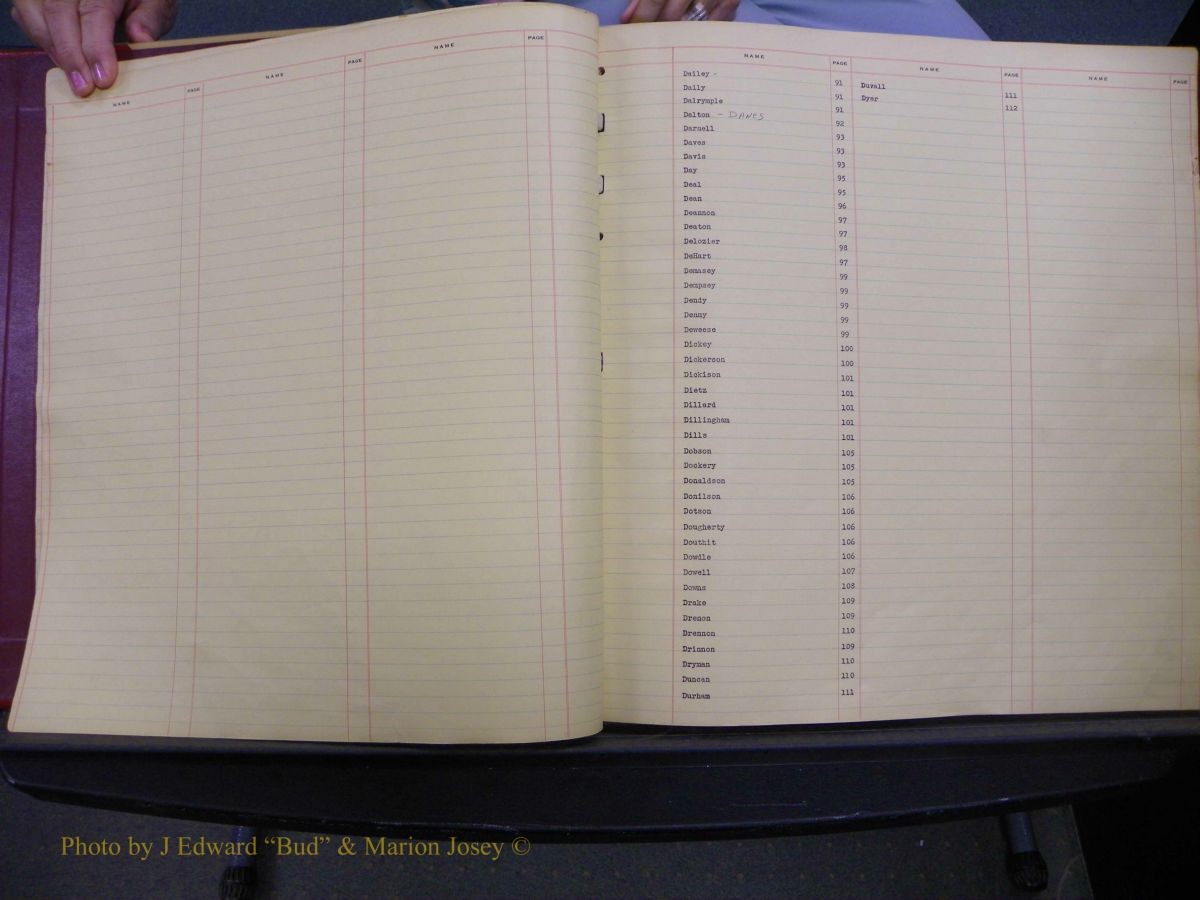 NAME PAGE NAME PAGE NAME PAGE
NAME PAGE NAME PAGE NAME PAGE
Dailey - 91 Duvall 111
Daily 91 Dyer 112
Dalrymple 91
Dalton - DANES 92
Darnell 93
Daves 93
Davis 93
Day 95
Deal 95
Dean 96
Deannon 97
Deaton 97
Delozier 98
DeHart 97
Demasey 99
Dempsey 99
Dendy 99
Denny 99
Deweese 99
Dickey 100
Dickerson 100
Dickison 101
Dietz 101
Dillard 101
Dillingham 101
Dills 101
Dobson 105
Dockery 105
Donaldson 105
Donilson 106
Dotson 106
Dougherty 106
Douthit 106
Dowdle 106
Dowell 107
Downs 108
Drake 109
Drenon 109
Drennon 110
Drinnon 109
Dryman 110
Duncan 110
Durham 111
Photo by J Edward “Bud” & Marion Josey ©